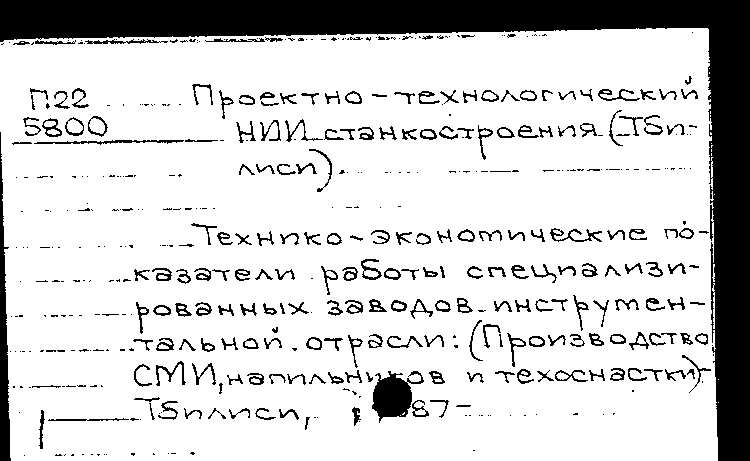 П22 Проектно-технологический
5800 НИИ станкостроения (Тби-
лиси).
Технико-экономические по-
казатели работы специализи-
рованных заводов инструмен-
тальной отрасли: (Производство
СМИ, напильников и техоснастки)-
Тбилиси, 87-